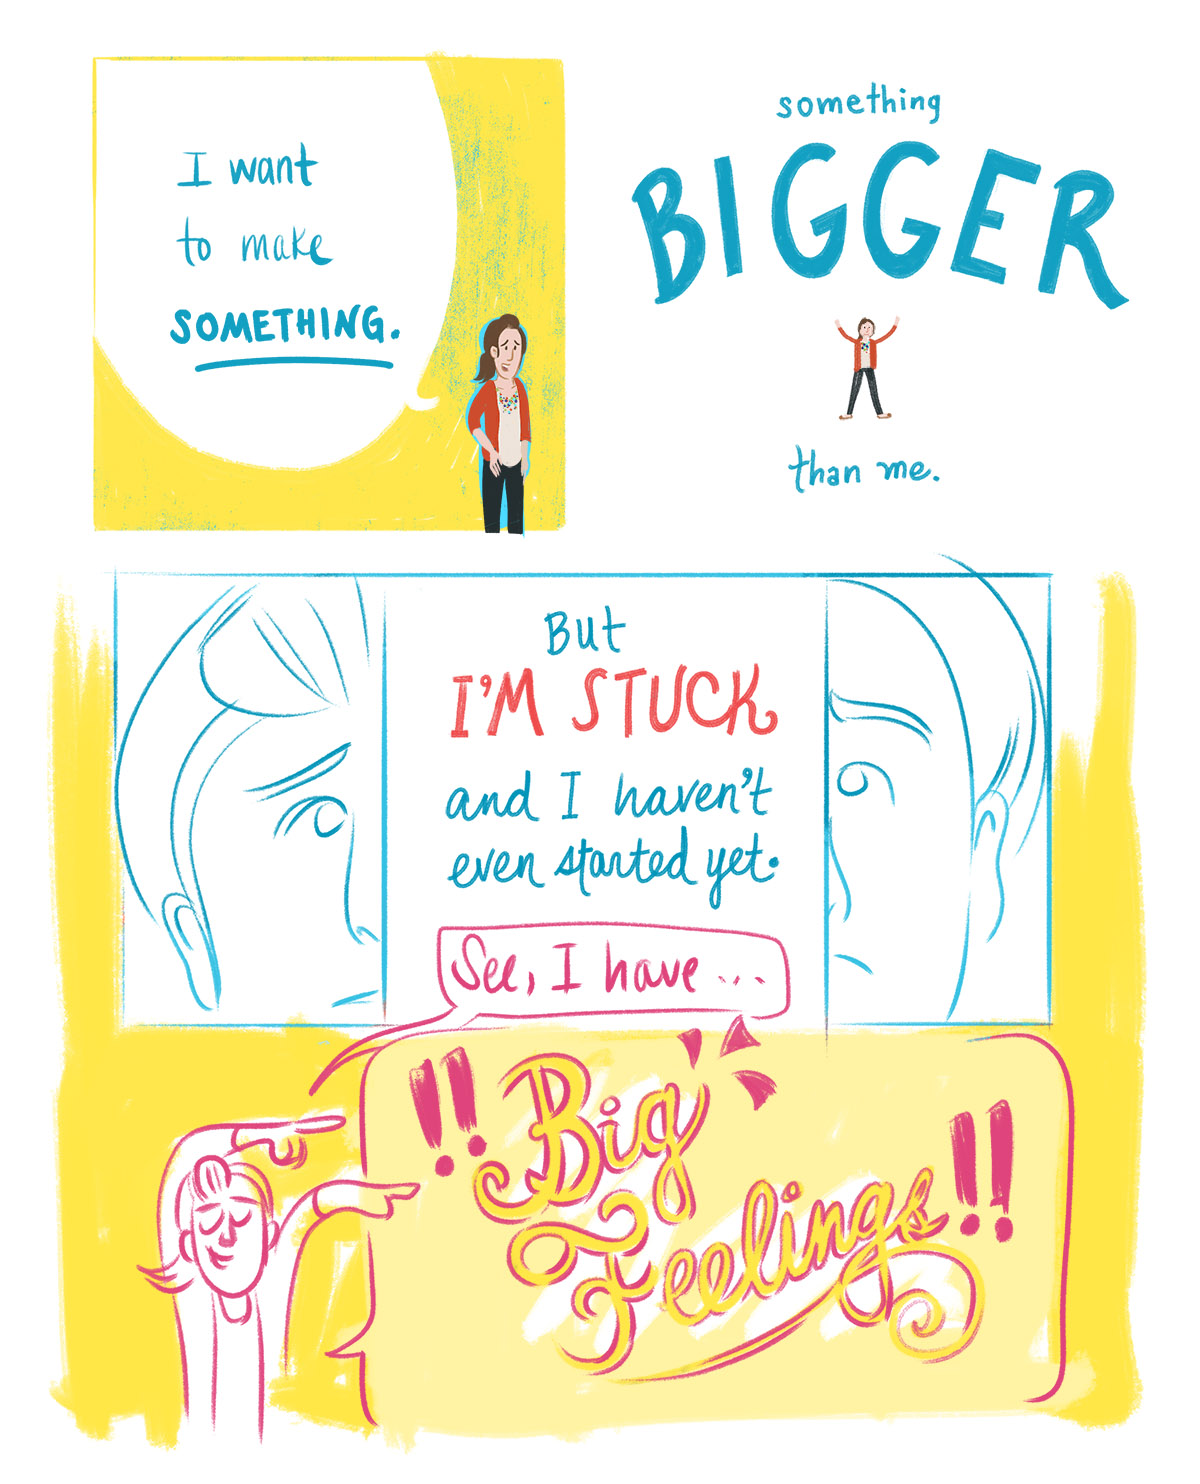 I want
to make
SOMETHING.
something
BIGGER
than me.
But
I'M STUCK
and I haven't
even started yet.
See, I have ...
!! Big
Feelings !!